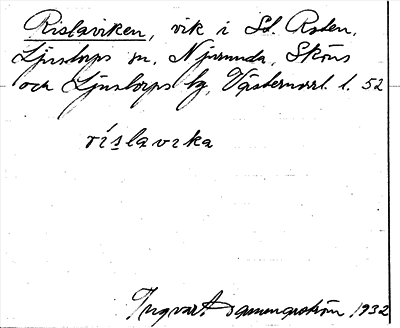 Rislaviken, vik i Sd. Roten,
Ljustorps sn. Njurunda, Sköns
och Ljustorps tg, Västernorrl. l. 52
ríslavika
Ingvar 1932